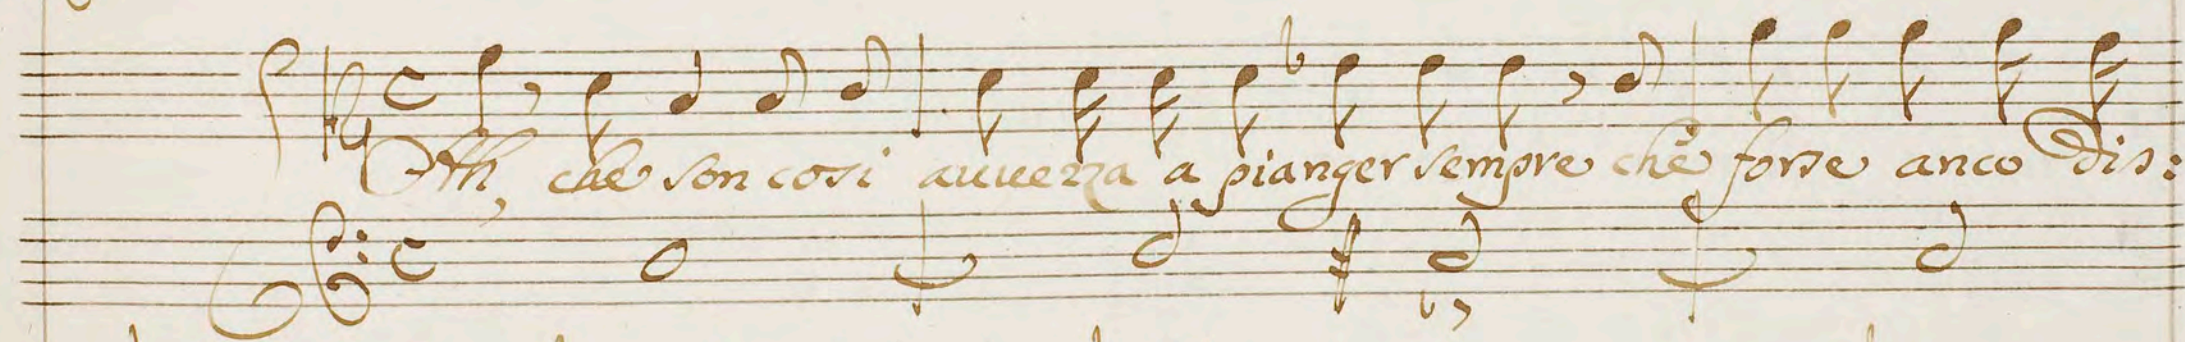 Ah, che son cosi auuezza a pianger sempre che forse anco dis: